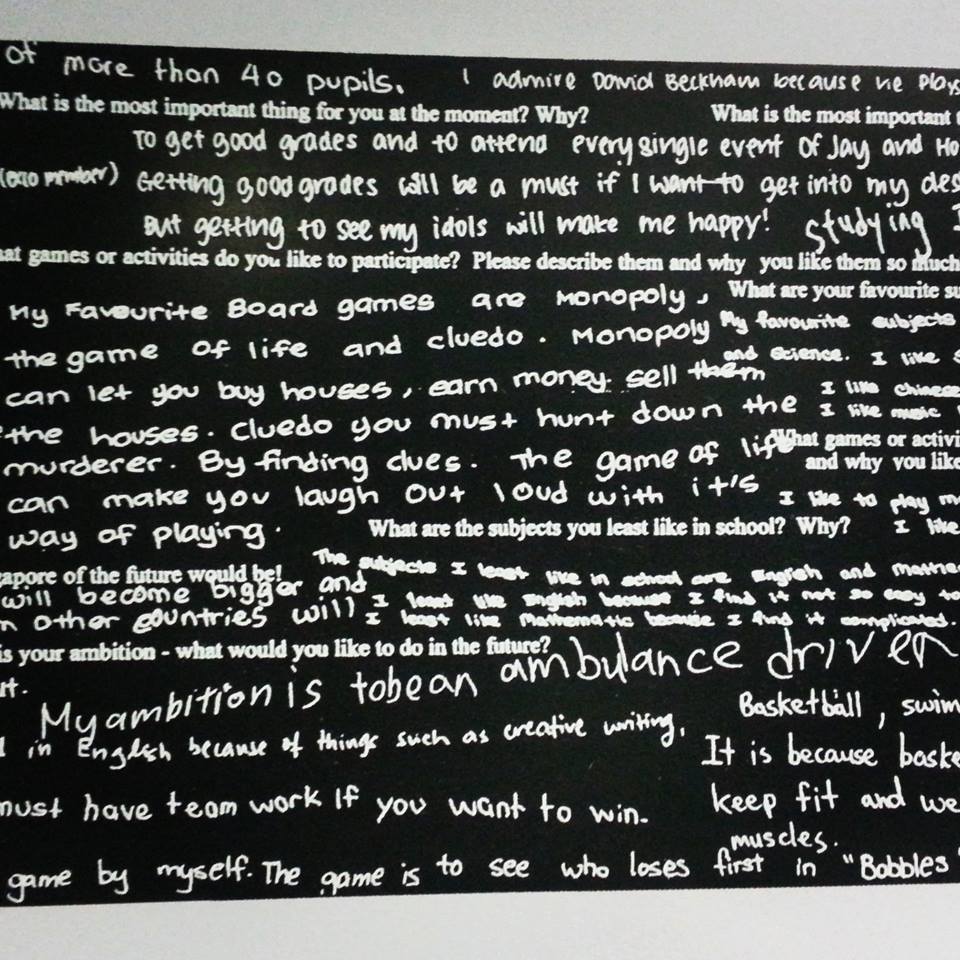 of more than 40 pupils. I admire David Beckham because he plays
What is the most important thing for you at the moment? Why? What is the most important t
To get good grades and to attend every single event of Jay and Ho
(exo member) Getting good grades will be a must if I want to get into my des
But getting to see my idols will make me happy! studying I
at games or activities do you like to participate? Please describe them and why you like them so much
My Favourite Board games are Monopoly, What are your favourite su
the game of life and cluedo. Monopoly My favourite subjects
and science. I like
can let you buy houses, earn money. sell them I like chinese
the houses. Cluedo you must hunt down the I like music
murderer. By finding clues. The game of life What games or activi
and why you like
can make you laugh out loud with it's I like to play m
way of playing. What are the subjects you least like in school? Why? I like
The subjects I least like in school are English and mathe
apore of the future would be!
will become bigger and I least like English because I find it not so easy to
n other countries will I least like Mathematic because I find it complicated.
is your ambition - what would you like to do in the future?
it. My ambition is to be an ambulance driver
Basketball, swim
I in English because of things such as creative writing, It is because baske
must have team work If you want to win. keep fit and we
muscles.
game by myself. The game is to see who loses first in "Bobbles"